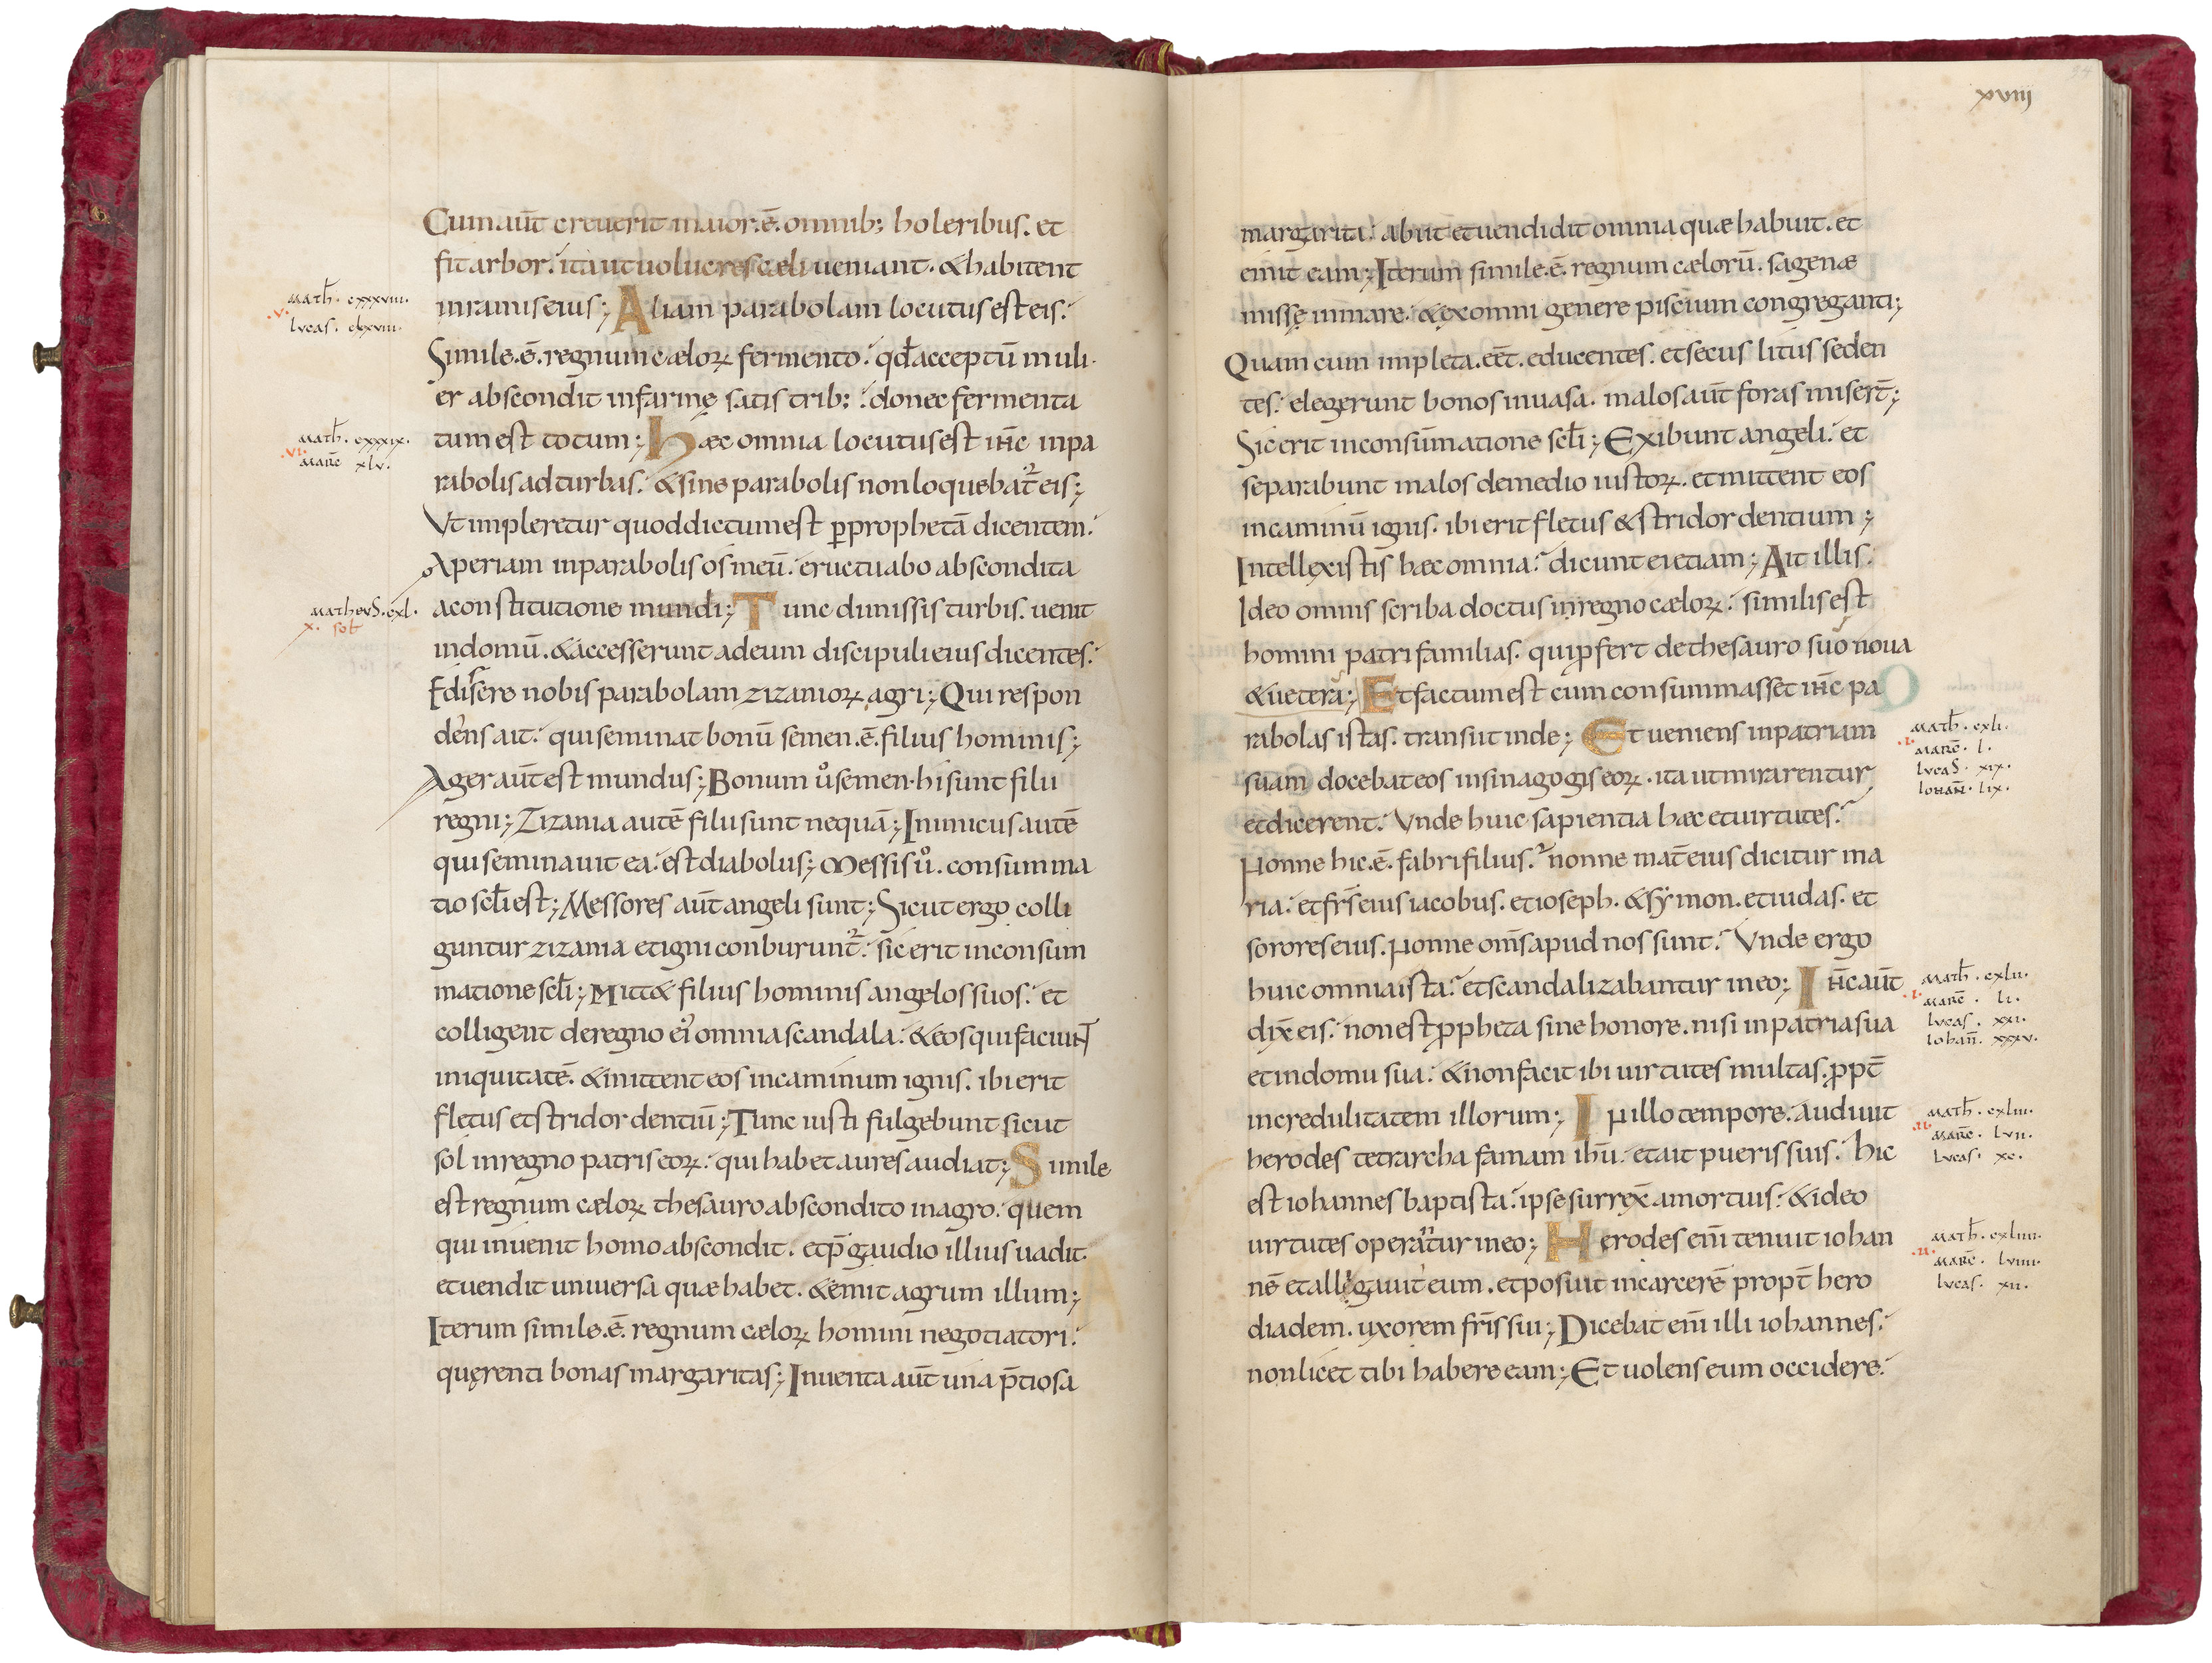 Cum aut̄ creuerit maior .ē. omnib; holeribus. et
fit arbor. ita ut uolucres cæli ueniant. & habitent
Math̄. cxxxviii.
.v.
lucas. clxviii.
in ramis eius; Aliam parabolam locutus est eis.
Simile .ē. regnum cæloꝝ fermento. qđ acceptū muli
er abscondit in farinę satis trib; donec fermenta
Math̄. cxxxix.
.vi.
Marc̄ xlv.
tum est totum; Hæc omnia locutus est ih̄c in pa
rabolis ad turbas. & sine parabolis non loquebat̄ eis;
Vt impleretur quod dictum est ꝑ prophetā dicentem.
Aperiam in parabolis os meū. eructuabo abscondita
MatheuS. cxl.
x. sol̄
a constitutione mundi; Tunc dimissis turbis. uenit
in domū. & accesserunt ad eum discipuli eius dicentes.
Edisere nobis parabolam zizanioꝝ agri; Qui respon
dens ait. qui seminat bonū semen .ē. filius hominis;
Ager aut̄ est mundus; Bonum uͦ semen. hi sunt filii
regni; Zizania autē filii sunt nequā; Inimicus autē
qui seminauit ea. est diabolus; Messis uͦ. consumma
tio scl̄i est; Messores aut̄ angeli sunt; Sicut ergo colli
guntur zizania et igni conburunt̄. sic erit in consum
matione scl̄i; Mitt& filius hominis angelos suos. et
colligent de regno ei᾿ omnia scandala. & eos qui faciunt
iniquitatē. & mittent eos in caminum ignis. ibi erit
fletus et stridor dentiū; Tunc iusti fulgebunt sicut
sol in regno patris eoꝝ. qui habet aures audiat; Simile
est regnum cæloꝝ thesauro abscondito in agro. quem
qui inuenit homo abscondit. et p̄ gaudio illius uadit.
et uendit uniuersa quæ habet. & emit agrum illum;
Iterum simile .ē. regnum cæloꝝ homini negotiatori.
quęrenti bonas margaritas; Inuenta aut̄ una p̄tiosa
xviii
margarita. abiit et uendidit omnia quæ habuit. et
emit eam; Iterum simile .ē. regnum cælorū. sagenæ
missę in mare. & ex omni genere piscium congreganti;
Quam cum impleta .eēt. educentes. et secus litus seden
tes. elegerunt bonos in uasa. malos aut̄ foras misert̄;
Sic erit in consūmatione scl̄i; Exibunt angeli. et
separabunt malos de medio iustoꝝ. et mittent eos
in caminū ignis. ibi erit fletus & stridor dentium;
Intellexistis hæc omnia. dicunt ei etiam; Ait illis.
Ideo omnis scriba doctus in regno cæloꝝ. similis est
homini patri familias. qui ꝓfert de thesauro suo noua
& uetera; Et factum est cum consummasset ih̄c pa
rabolas istas. transiit inde; Et ueniens in patriam
Math̄. cxli.
.i.
Marc̄. l.
lucaS. xix.
Iohan̄. lix.
suam docebat eos in sinagogis eoꝝ. ita ut mirarentur
et dicerent. Vnde huic sapientia hæc et uirtutes.
Nonne hic .ē. fabri filius. nonne mat̄ eius dicitur ma
ria. et fr̄s eius iacobus. et ioseph. & symon. et iudas. et
sorores eius. Nonne om̄s apud nos sunt. Vnde ergo
huic omnia ista. et scandalizabantur in eo; Ih̄c aut̄
Math̄. cxlii.
.i.
Marc̄. li.
lucas. xxi.
Iohan̄. xxxv.
dix̄ eis. non est ꝓpheta sine honore. nisi in patria sua
et in domu sua. & non facit ibi uirtutes multas. ꝓpt̄
incredulitatem illorum; In illo tempore. audiuit
Math̄. cxliii.
.ii.
Marc̄. lvii.
lucas. xc.
herodes tetrarcha famam ih̄u. et ait pueris suis. hic
est iohannes baptista. ipse surrex̄ a mortuis. & ideo
uirtutes operantur in eo; Herodes eni᷄ tenuit iohan
Math̄. cxliiii.
.ii.
Marc̄. lviiii.
lucas. xii.
nē et alligauit eum. et posuit in carcerē propt̄ hero
diadem. uxorem fr̄is sui; Dicebat eni᷄ illi iohannes.
non licet tibi habere eam; Et uolens eum occidere.